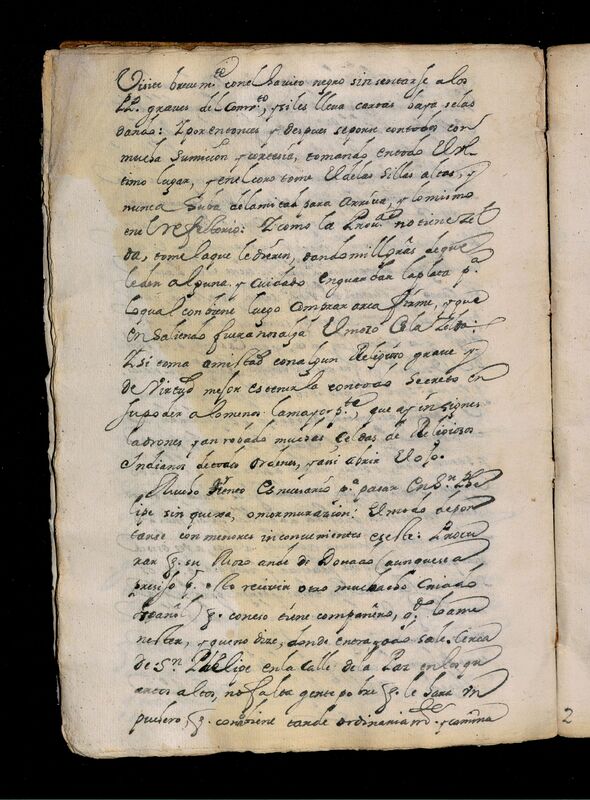 Visite brevemte. con el havito negro sin sentarse a los
PPs. graves del Convto. y si les lleva cartas vaya selas
dando: Y por entonces y despues se porte con todos con
mucha sumicion y cortesia, tomando en todo el ul
timo lugar, y en el coro tome el delas sillas altas, y
nunca suba de la mitad para arriva, y lo mismo
en el refectorio: Y como la Prova. no tiene zel
da, tome la que le dieren, dando mill gras. de que
le den alguna. y cuidado en guardar la plata pa.
lo qual conviene luego comprar arca firme, y que
en saliendo fuera no salga el mozo de la zelda.
Y si toma amistad con algun Religioso grave y
de virtud mejor es tenerla con todo secreto en
su poder a lo menos la mayor pte. que ay insignes
ladrones y an robado muchas celdas de Religiosos
Indianos de todas ordenes, y asi abrir el ojo.
Mucho tiento es nesesario pa. pasar en Sn. Phe
lipe sin quexa, o murmurazion: El modo de por
tarse con menores inconvenientes es este: Procu
rar q. su Mozo ande de Donado (aunque sea
presiso q. esto recivir otro muchacho criado
español) q. con eso tiene compañero, qdo. lo ame
nester, y que no dize, donde entra, o do sale. Cerca
de Sn. Phelipe en la calle de la Paz en los qu
artos altos, no falta gente pobre q. le hara un
puchero q. conviene tarde ordinariamte. y comida